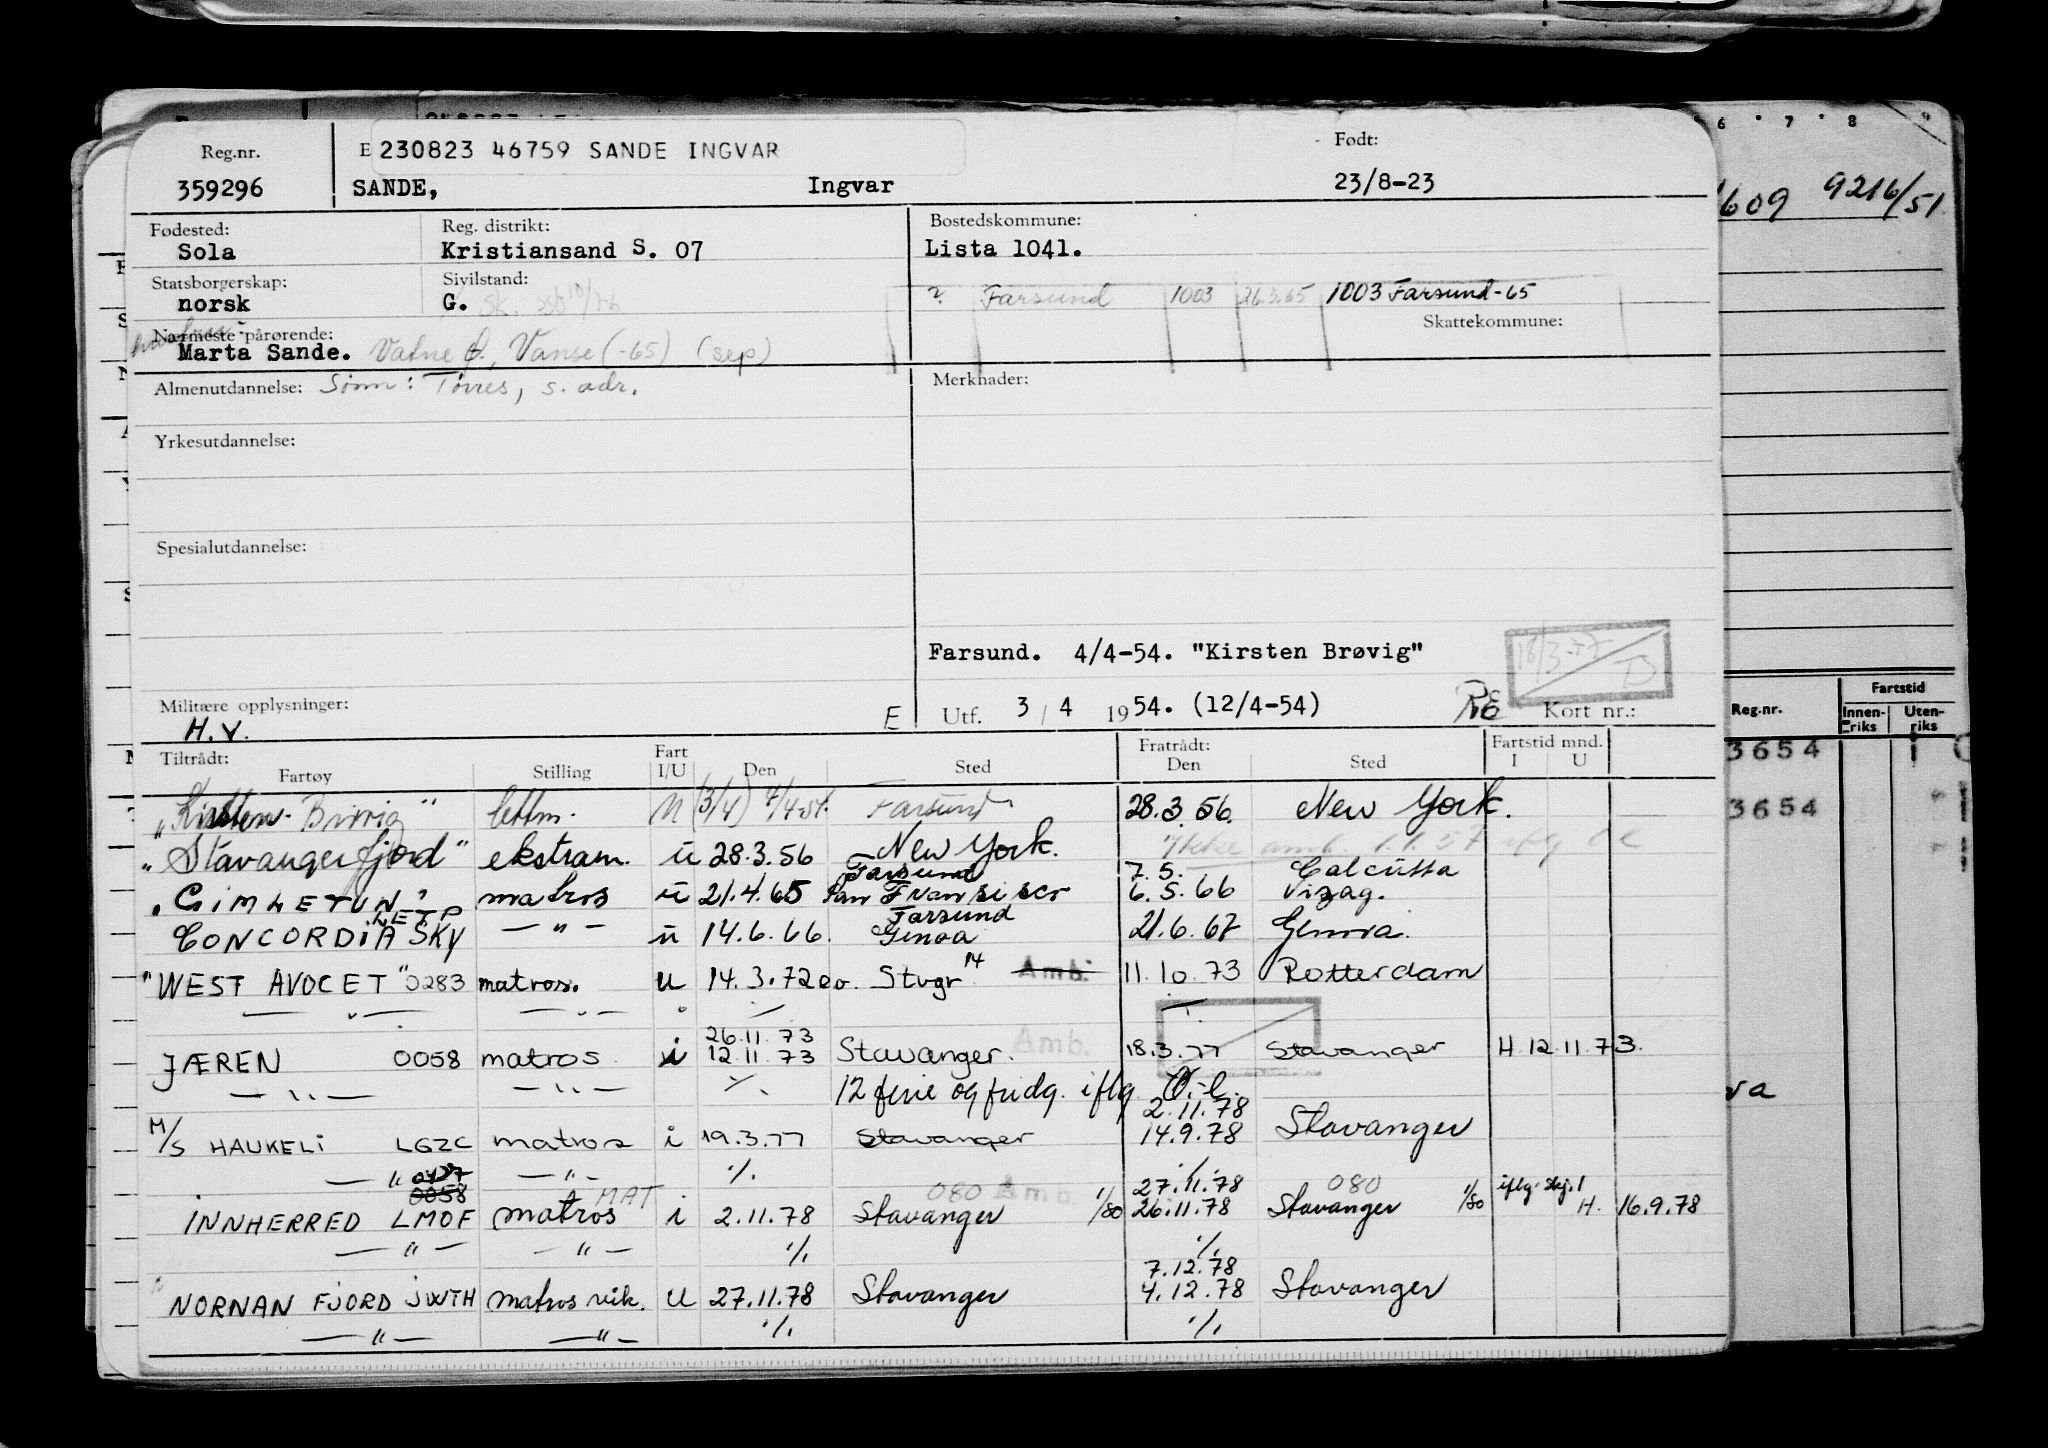 Reg.nr. E 230823 46759 SANDE INGVAR Født:
359296 SANDE, Ingvar 23/8-23
609 9216/51
Fødested: Reg. distrikt: Bostedskommune:
Sola Kristiansand S. 07 Lista 1041.
Statsborgerskap: Sivilstand:
norsk G.
? Farsund 1003 26.3.65 1003 Farsund-65
Nærmeste pårørende: Skattekommune:
Marta Sande. Vatne Ø., Vanse (-65) (sep)
Almenutdannelse: Sønn: Tørres, s. adr. Merknader:
Yrkesutdannelse:
Spesialutdannelse:
Farsund. 4/4-54. "Kirsten Brøvig"
18/3-77
Militære opplysninger: E Utf. 3 / 4 1954. (12/4-54) Kort nr.:
H.V.
Tiltrådt: Fart Fratrådt: Fartstid mnd.
Fartøy Stilling I/U Den Sted Den Sted I U
Reg.nr. Fartstid
Innenriks Utenriks
3654
3654
"Kirsten Brøvig" lettm. U (3/4) 4/4-54. Farsund 28.3.56. New York.
"Stavangerfjord" ekstram. u 28.3.56 New York.
Farsund 7.5. Calcutta
"GIMLETUN" matros u 21.4.65 San Fransisco 6.5.66 Vizag.
LETP Farsund
CONCORDIA SKY — " — u 14.6.66. Genoa 21.6.67 Genova.
"WEST AVOCET" 0283 matros. u 14.3.72 eo. Stvgr 14 Amb. 11.10.73 Rotterdam
— " — — " —
26.11.73 Amb.
JÆREN 0058 matros i 12.11.73 Stavanger. 18.3.77 Stavanger H. 12.11.73.
— " — — " — ./. 12 ferie og fridg. iflg. O.-l.
2.11.78
M/S HAUKELI LGZC matros i 19.3.77 Stavanger 14.9.78 Stavanger
— " — — " — ./. ./.
0058 MAT 080 Amb. 1/80 27.11.78 080 1/80
INNHERRED LMOF matros i 2.11.78 Stavanger 26.11.78 Stavanger H. 16.9.78
— " — — " — ./. ./.
7.12.78
NORNAN FJORD JWTH matros vik. U 27.11.78 Stavanger 4.12.78 Stavanger
— " — — " — ./. ./.